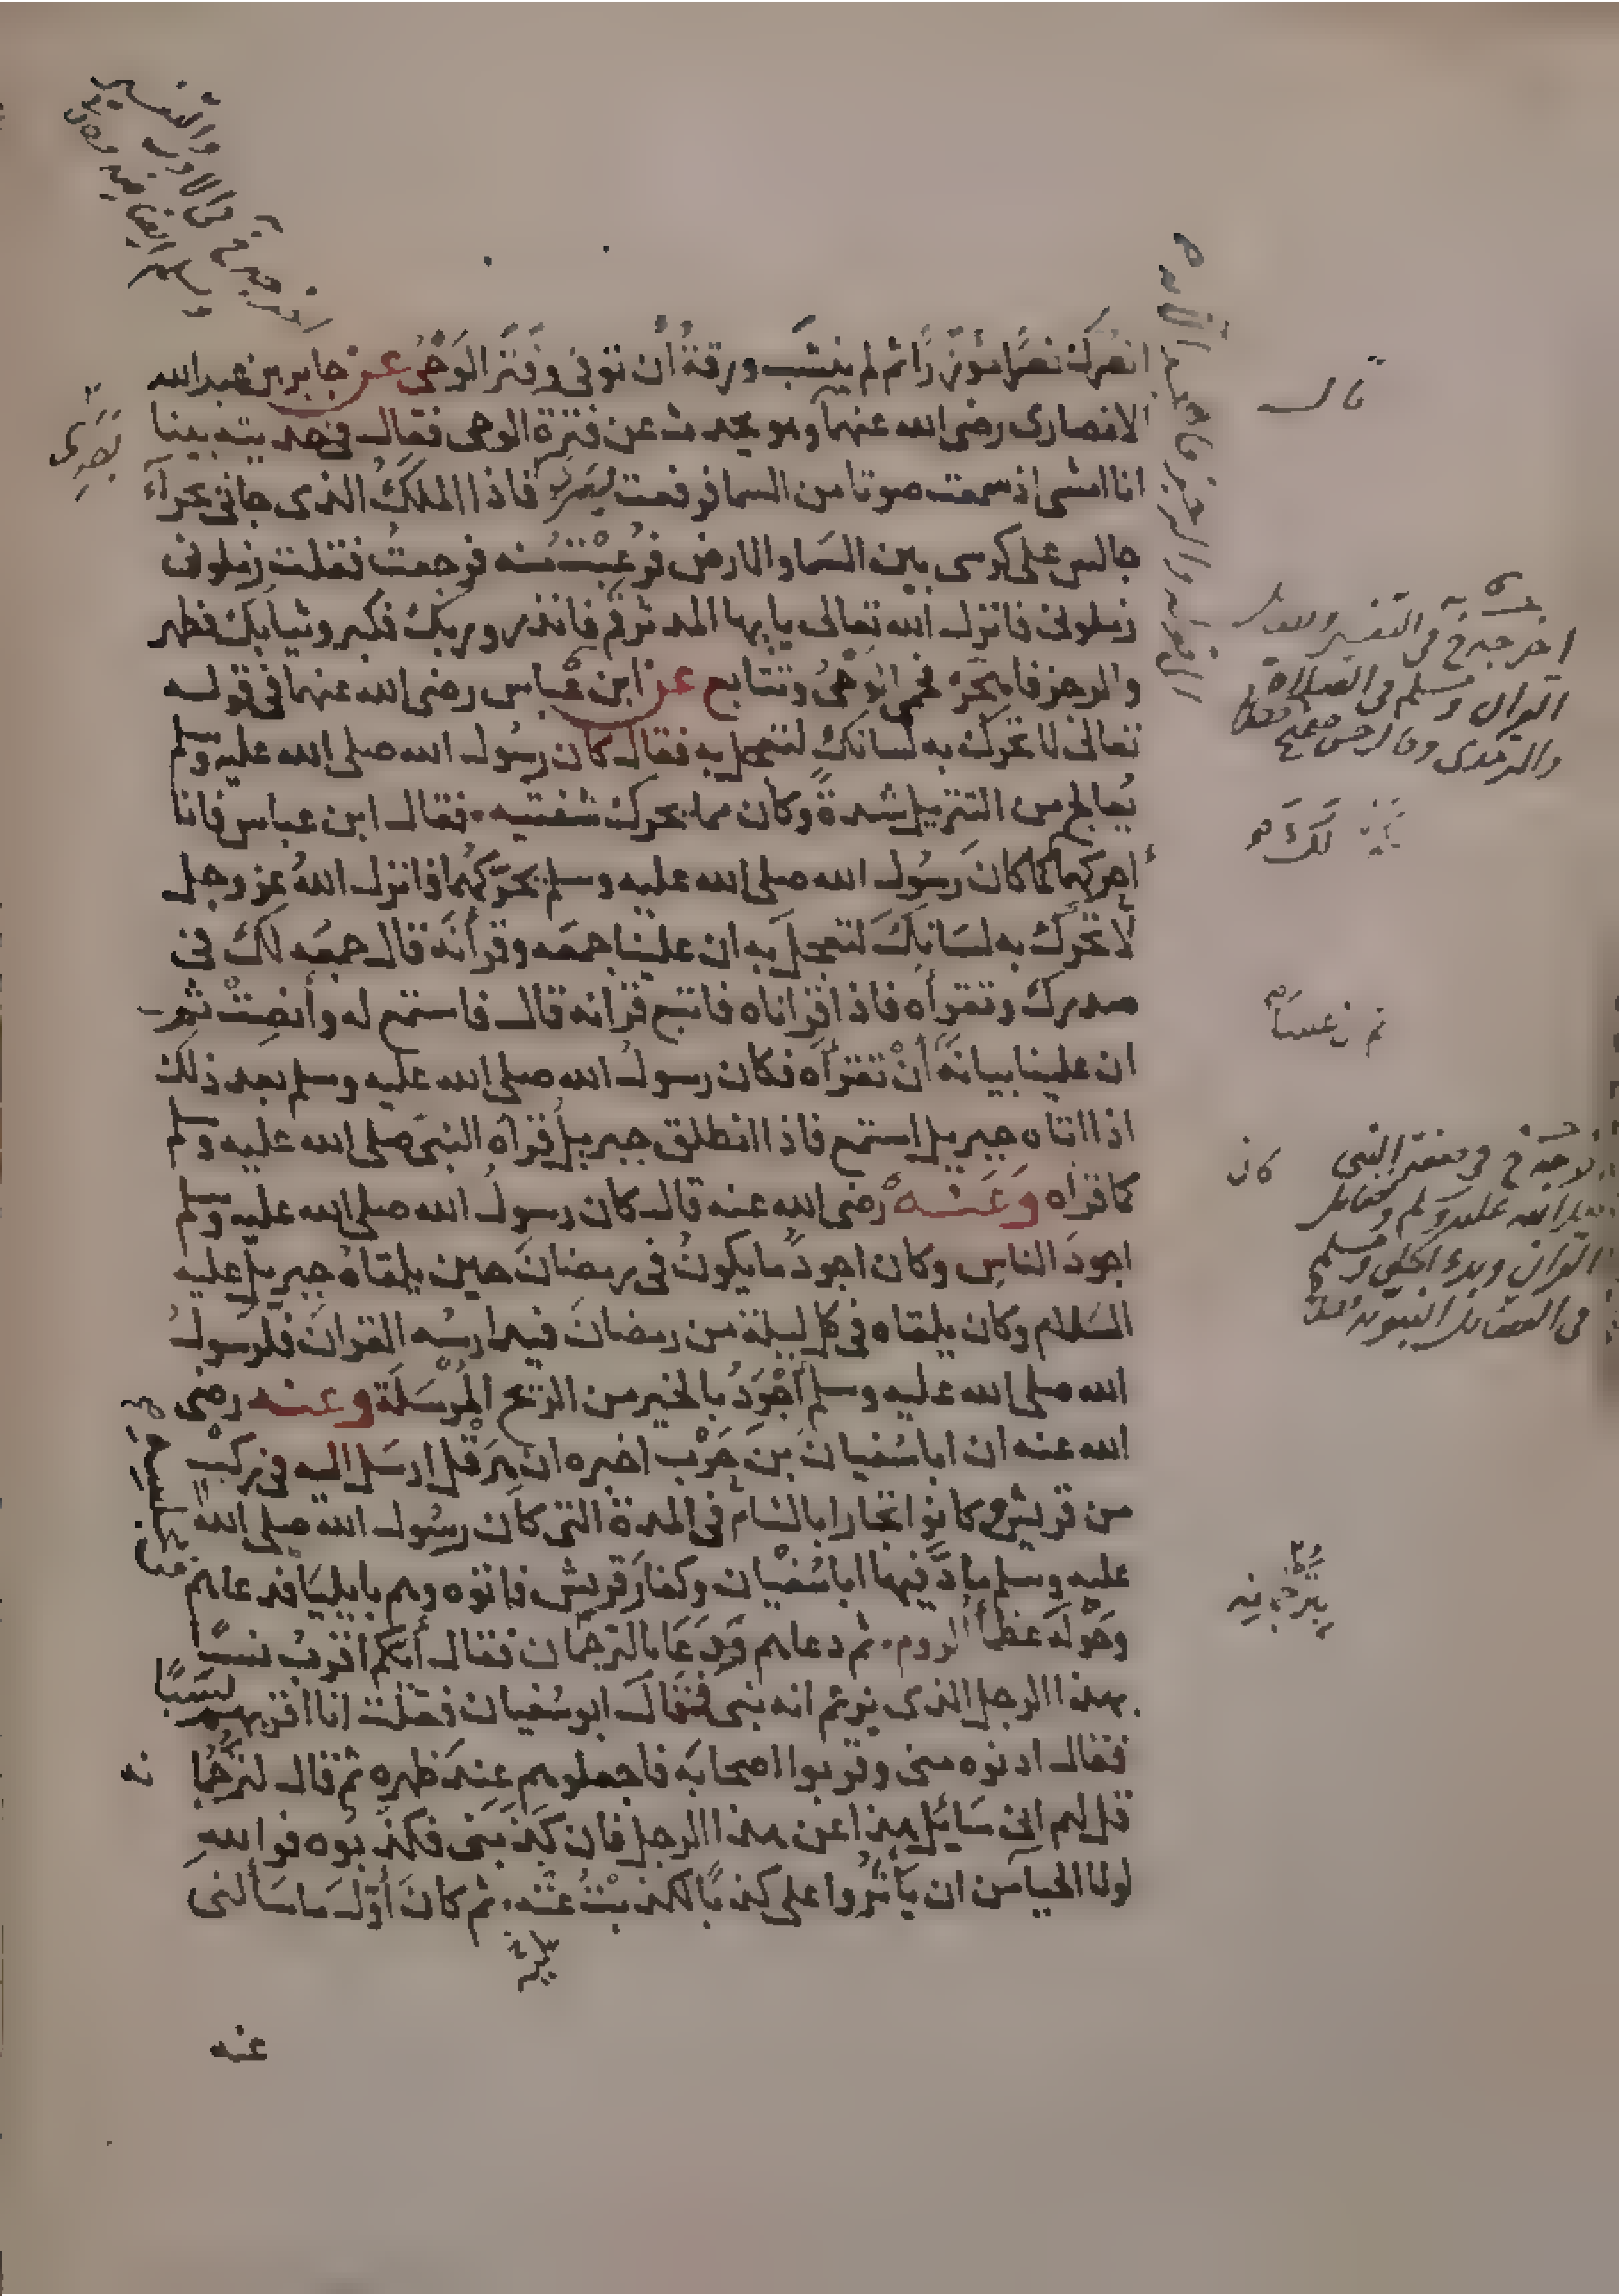 انصرك نصرا مؤزرا ثم لم ينشب ورقة أن توفى وفتر الوحى عن جابر بن عبد الله
الانصارى رضى الله عنهما وهو يحدث عن فترة الوحى فقال فى حديثه بينا
انا امشى اذ سمعت صوتا من السما فرفعت بصرى فاذا الملك الذى جانى بحرآء
جالس على كرسى بين السما والارض فرعبت منه فرجعت فقلت زملونى
زملونى فانزل الله تعالى يا يها المدثر قم فانذر وربك فكبر وثيابك فطهر
والرجز فاهجر فحمى الوحى وتتابع عن ابن عباس رضى الله عنهما فى قوله
تعالى لا تحرك به لسانك لتعجل به فقال كان رسول الله صلى الله عليه وسلم
يعالج من التنزيل شدة وكان مما يحرك شفتيه فقال ابن عباس فانا
أحركهما كما كان رسول الله صلى الله عليه وسلم يحركهما فانزل الله عز وجل
لا تحرك به لسانك لتعجل به ان علينا جمعه وقرأنه قال جمعه لك فى
صدرك وتقرأه فاذا قراناه فاتبع قرانه قال فاستمع له وأنصت ثم
ان علينا بيانه أن تقرأه فكان رسول الله صلى الله عليه وسلم بعد ذلك
اذا اتاه جبريل استمع فاذا انطلق جبريل قرأه النبى صلى الله عليه وسلم
كما قرأه وعنه رضى الله عنه قال كان رسول الله صلى الله عليه وسلم
اجود الناس وكان اجود ما يكون فى رمضان حين يلقاه جبريل عليه
السلام وكان يلقاه فى كل ليلة من رمضان فيدارسه القران فلرسول
الله صلى الله عليه وسلم أجود بالخير من الريح المرسلة وعنه رضى
الله عنه ان ابا سفيان بن حرب اخبره ان هرقل ارسل اليه فى ركب
من قريش وكانوا تجارا بالشام فى المدة التى كان رسول الله صلى الله
عليه وسلم ماد فيها ابا سفيان وكفار قريش فاتوه وهم بايليا فدعاهم
وحوله عظما الروم ثم دعاهم ودعا بالترجمان فقال أيكم اقرب نسبا
بهذا الرجل الذى يزعم انه نبى فقال ابو سفيان فقلت انا اقربهم
نسبا
فقال ادنوه منى وقربوا اصحابه فاجعلوهم عند ظهره ثم قال لترجما
نه
قل لهم انى سائل هذا عن هذا الرجل فان كذبنى فكذبوه فوالله
لولا الحيا من ان يأثروا على كذبا لكذبت عنه ثم كان أول ما سألنى
عنه
قال
بصرى
اخرجه خ فى التفسير
القران ومسلم فى الصلاة
والترمذى وقال حسن صحيح
كان
اخرجه خ فى صفة النبى
صلى الله عليه وسلم وفضائل
القران وبدء الخلق ومسلم
فى الفضائل النبوية